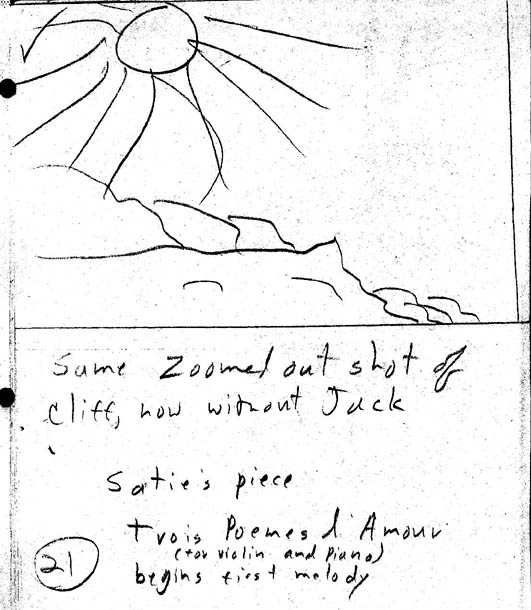 Same Zoomed out shot of
cliff, now without Jack
Satie's piece
Trois Poemes d'Amour
(for violin and piano)
begins first melody
21